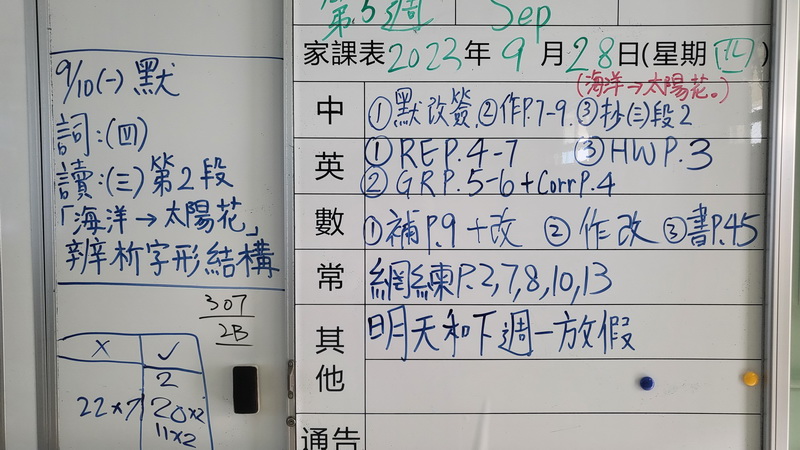 9/10(一) 默
詞:(四)
讀:(三)第2段
「海洋→太陽花」
辨析字形結構
307
2B
× ✓
2
22×7 20×2
11×2
第5週 Sep
家課表2023年9月28日(星期四)
(海洋→太陽花。)
中 ①默改簽 ②作P.7-9 ③抄(三)段2
英 ①REP.4-7 ③HWP.3
②GRP.5-6+CorrP.4
數 ①補P.9+改 ②作改 ③書P.45
常 網練P.2,7,8,10,13
其他 明天和下週一放假
通告